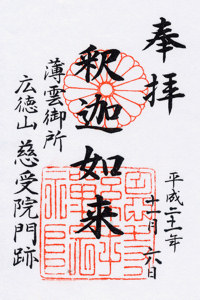 奉拝
平成二十一年
十一月六日
釈迦如来
薄雲御所
広徳山 慈受院門跡